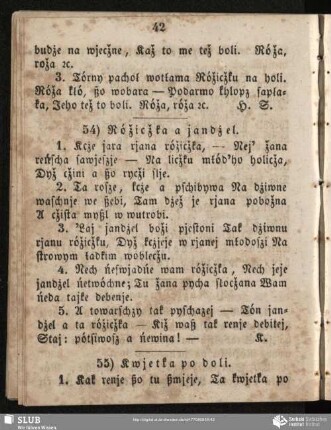 42
budże na wjecżne, Kaž to me też boli. Róża,
roża ꝛc.
3. Tórny pachoł wotłama Różicżku na holi.
Róża kló, ßo wobara — Podarmo
ka, Jeho też to boli. Róża, róża ꝛc. H. S.
54) Różicżka a jandżel.
1. Kcże jara rjana różicżka, — Nej' żana
sawjeszje — Na licżku młód'ho holicża,
Dyż cżini a ßo rycżi slje.
2. Ta rosże, kcże a pschibywa Na dżiwne
waschnje we ßebi, Tam dżeż je rjana pobożna
A cżista myßl w wutrobi.
3. 'Laj jandżel boži pjestoni Tak dżiwnu
rjanu różicżku, Dyż kczjeje w rjanej młodoszi Na
strowym ładkim woblecżu.
4. Nech ńeswjadńe wam różicżka, Nech jeje
jandżel ńetwóchne; Tu żana pycha slocżana Wam
ńeda tajke debenje.
5. A towarschzy tak pyschazej — Tón jan-
dżel a ta różicżka — Kiż waß tak renje debitej,
Staj: pótsiwosz a ńewina! — K.
55) Kwjetka po doli.
1. Kak renje ßo tu ßmjeje, Ta kwjetka po
SLUB
Wir führen Wissen.